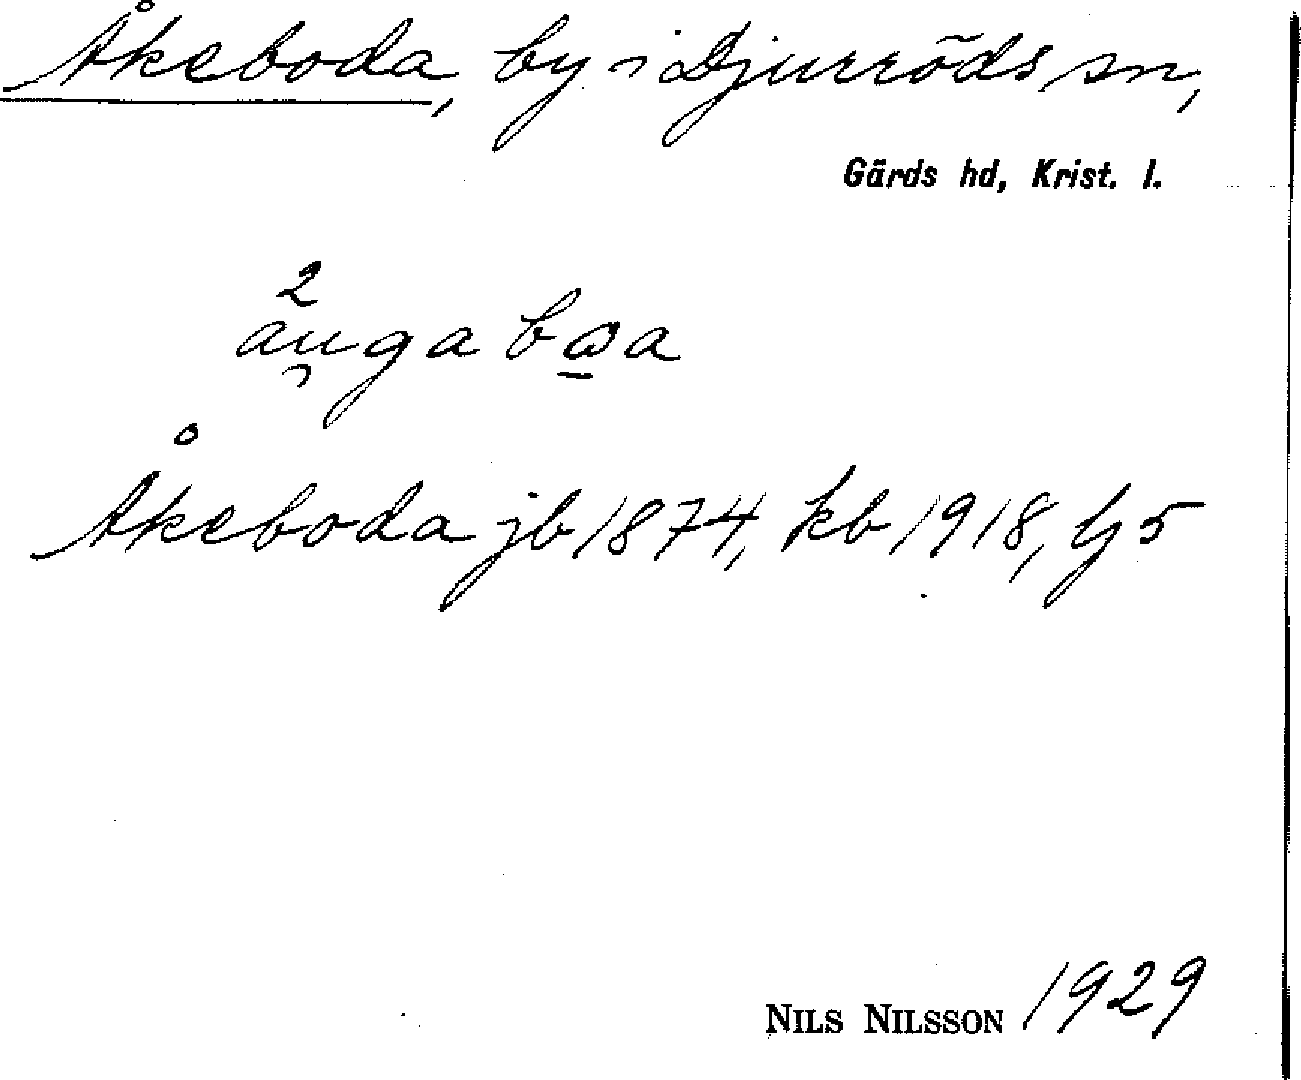 Åkeboda, by i Djurröds sn,
Gärds hd, Krist. l.
2
au̯ga bω̲a
Åkeboda jb 1874, kb 1918, G 5
NILS NILSSON 1929